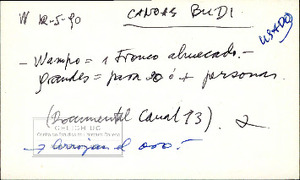 W 12-5-90
CANOAS BUDI
USADO
– Wampo = 1 Tronco ahuecado.–
grandes = para 20 ó + personas.
(Documental Canal 13).
CHI CH UC
→ arrojan el